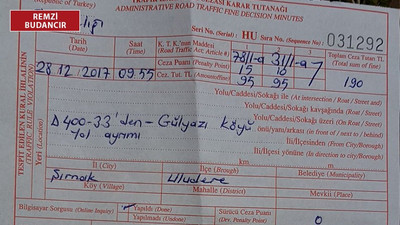 REMZİ
BUDANCIR
KARAR TUTANAĞI
ADMINISTRATIVE ROAD TRAFFIC FINE DECISION MINUTES
Seri No: (Serial No) : HU Sıra No (Sequence No) : 031292
Tarih
(Date)
Saat
(Time)
Maddesi
78/1-a 31/1-a
Toplam Ceza Tutarı TL
Ceza Puanı 15 10
28 12 2017 09 55 Cez. Tut. TL 95 95 190
TESPİT EDİLEN KURAL İHLALİNİN
(TRAFFIC RULE VIOLATION)
Yeri (Location)
Yolu/Caddesi/Sokağı ile (At intersection / Road / Street)
Yolu/Caddesi/Sokağı kavşağında (Road / Street)
D400-33'den - Gülyazı Köyü
Yolu/Caddesi/Sokağı üzeri (On the Road / Street)
yol ayrımı
önü/yanı/arkası (in front of / next to / behind)
İli/İlçesinden (From City/Borough)
İli/İlçesi yönüne (In direction to city/borough)
İli (City) İlçe (Borough) Belediyesi (Municipality)
Şırnak Uludere
Köy (Village) Mahalle (District) Mevkii (Place)
Bilgisayar Sorgusu (Online Inquiry) Yapıldı (Done)
Yapılmadı (Undone)
Sürücü Ceza Puanı
(Driver Penalty Point) 0